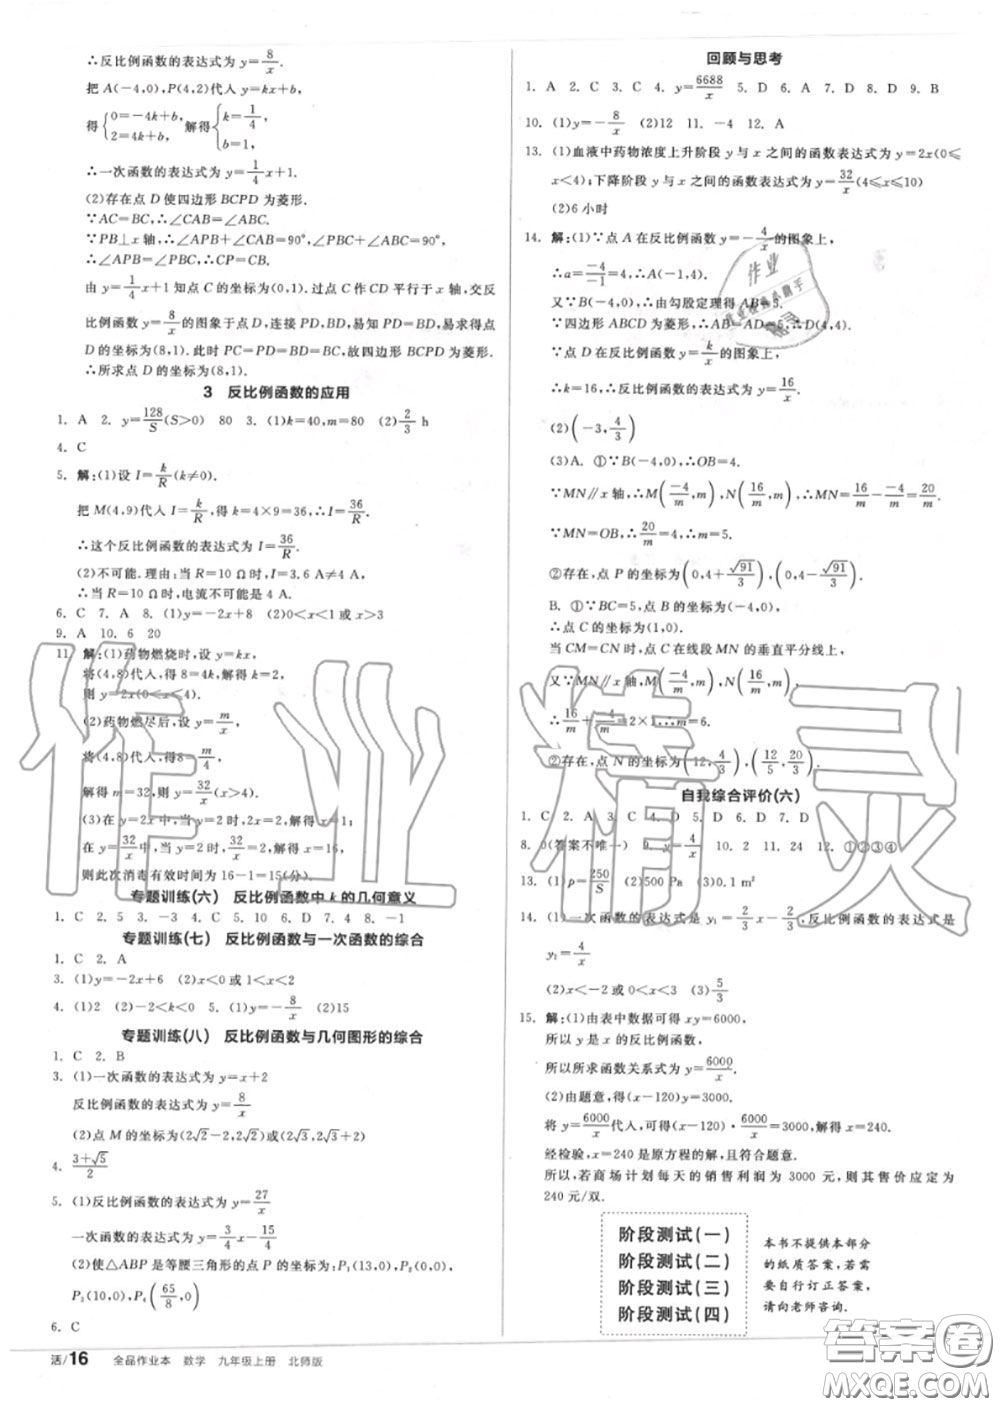 ∴反比例函数的表达式为 y=8/x.
把 A(-4,0),P(4,2)代入 y=kx+b,
得{0=-4k+b, 2=4k+b, 解得{k=1/4, b=1,
∴一次函数的表达式为 y=1/4x+1.
(2)存在点 D 使四边形 BCPD 为菱形.
∵AC=BC,∴∠CAB=∠ABC.
∵PB⊥x 轴,∴∠APB+∠CAB=90°,∠PBC+∠ABC=90°,
∴∠APB=∠PBC,∴CP=CB.
由 y=1/4x+1 知点 C(0,1).过点 C 作 CD 平行于 x 轴,交反
比例函数 y=8/x的图象于点 D,连接 PD,BD,易求得点
D 的坐标为(8,1).此时 PC=PD=BC=BD,故四边形 BCPD 为菱形.
∴所求点 D 的坐标为(8,1).
3 反比例函数的应用
1. A 2. y=128/S(S>0) 80 3. (1)k=40,m=80 (2)2/3 h
4. C
5. 解:(1)设 I=k/R(k≠0).
把 M(4,9)代入 I=k/R,得 k=4×9=36,∴I=36/R.
∴这个反比例函数的表达式为 I=36/R.
(2)不可能.理由:当 R=10 Ω时,I=3.6 A≠4 A.
∴当 R=10 Ω时,电流不可能是 4 A.
6. C 7. A 8. (1)y=-2x+8 (2)0<x<1 或 x>3
9. A 10. 6 20
11. 解:(1)药物燃烧时,设 y=kx,
将(4,8)代入,得 8=4k,解得 k=2,
则 y=2x(0<x≤4).
(2)药物燃尽后,设 y=m/x,
将(4,8)代入,得 8=m/4,
解得 m=32,则 y=32/x(x>4).
(3)在 y=2x 中,当 y=2时,2x=2,解得 x=1;
在 y=32/x中,当 y=2时,32/x=2,解得 x=16.
则此次消毒有效时间为 16-1=15(分).
专题训练(六) 反比例函数中 k 的几何意义
1. C 2. 5 3. -3 4. C 5. 10 6. D 7. 4 8. -1
专题训练(七) 反比例函数与一次函数的综合
1. C 2. A
3. (1)y=-2x+6 (2)x<0 或 1<x<2
4. (1)2 (2)-2<k<0 5. (1)y=-8/x (2)15
专题训练(八) 反比例函数与几何图形的综合
1. C 2. B
3. (1)一次函数的表达式为 y=x+2
反比例函数的表达式为 y=8/x
(2)点 M 的坐标为(2√2-2,2√2)或(2√3,2√3+2)
4. (3+√5)/2
5. (1)反比例函数的表达式为 y=27/x
一次函数的表达式为 y=3/4x-15/4
(2)使△ABP 是等腰三角形的点 P 的坐标为:P₁(13,0),
P₃(10,0),P₄(65/8,0)
6. C
活/16 全品作业本 数学 九年级上册 北师版
回顾与思考
1. A 2. C 3. C 4. y=6688/x 5. D 6. A 7. D 8. D 9. B
10. (1)y=-8/x (2)12 11. -4 12. A
13. (1)血液中药物浓度上升阶段 y 与 x 之间的函数表达式为 y=2x(0≤
x<4);下降阶段 y 与 x 之间的函数表达式为 y=32/x(4≤x≤10)
(2)6 小时
14. 解:(1)∵点 A 在反比例函数 y=-4/x的图象上,
∴a=-4/4=-1,∴A(-1,4).
又∵B(-4,0),∴由勾股定理得 AB=5.
∵四边形 ABCD 为菱形,∴AB=AD=5,∴D(4,4).
∵点 D 在反比例函数 y=k/x的图象上,
∴k=16,∴反比例函数的表达式为 y=16/x.
(2)(-3,4/3)
(3)A. ①∵B(-4,0),∴OB=4.
∵MN∥x 轴,∴M(-4/m,m),N(16/m,m),∴MN=16/m--4/m=20/m.
∵MN=OB,∴20/m=4,∴m=5.
②存在,点 P 的坐标为(0,4+√91/3),(0,4-√91/3).
B. ①∵BC=5,点 B 的坐标为(-4,0),
∴点 C 的坐标为(1,0).
当 CM=CN 时,点 C 在线段 MN 的垂直平分线上,
又∵MN∥x 轴,M(-4/m,m),N(16/m,m),
∴16/m+-4/m=2×1,∴m=6.
②存在,点 N 的坐标为(12,4/3),(12/5,20/3)
自我综合评价(六)
1. C 2. A 3. C 4. D 5. D 6. D 7. D
8. 0(答案不唯一) 9. y=4/x 10. 2 11. 24 12. ①②③④
13. (1)p=250/S (2)500 Pa (3)0.1 m²
14. (1)一次函数的表达式是 y₁=2/3x-2/3,反比例函数的表达式是
y₂=4/x
(2)x<-2 或 0<x<3 (3)5/3
15. 解:(1)由表中数据可得 xy=6000,
所以 y 是 x 的反比例函数,
所以所求函数关系式为 y=6000/x.
(2)由题意,得(x-120)y=3000.
将 y=6000/x代入,可得(x-120)·6000/x=3000,解得 x=240.
经检验,x=240 是原方程的解,且符合题意.
所以,若商场计划每天的销售利润为 3000 元,则其售价应定为
240 元/双.
阶段测试(一)
阶段测试(二)
阶段测试(三)
阶段测试(四)
本书不提供本部分
的纸质答案,若需
要自行订正答案,
请向老师咨询.
作业精灵
答案圈
MXQE.COM